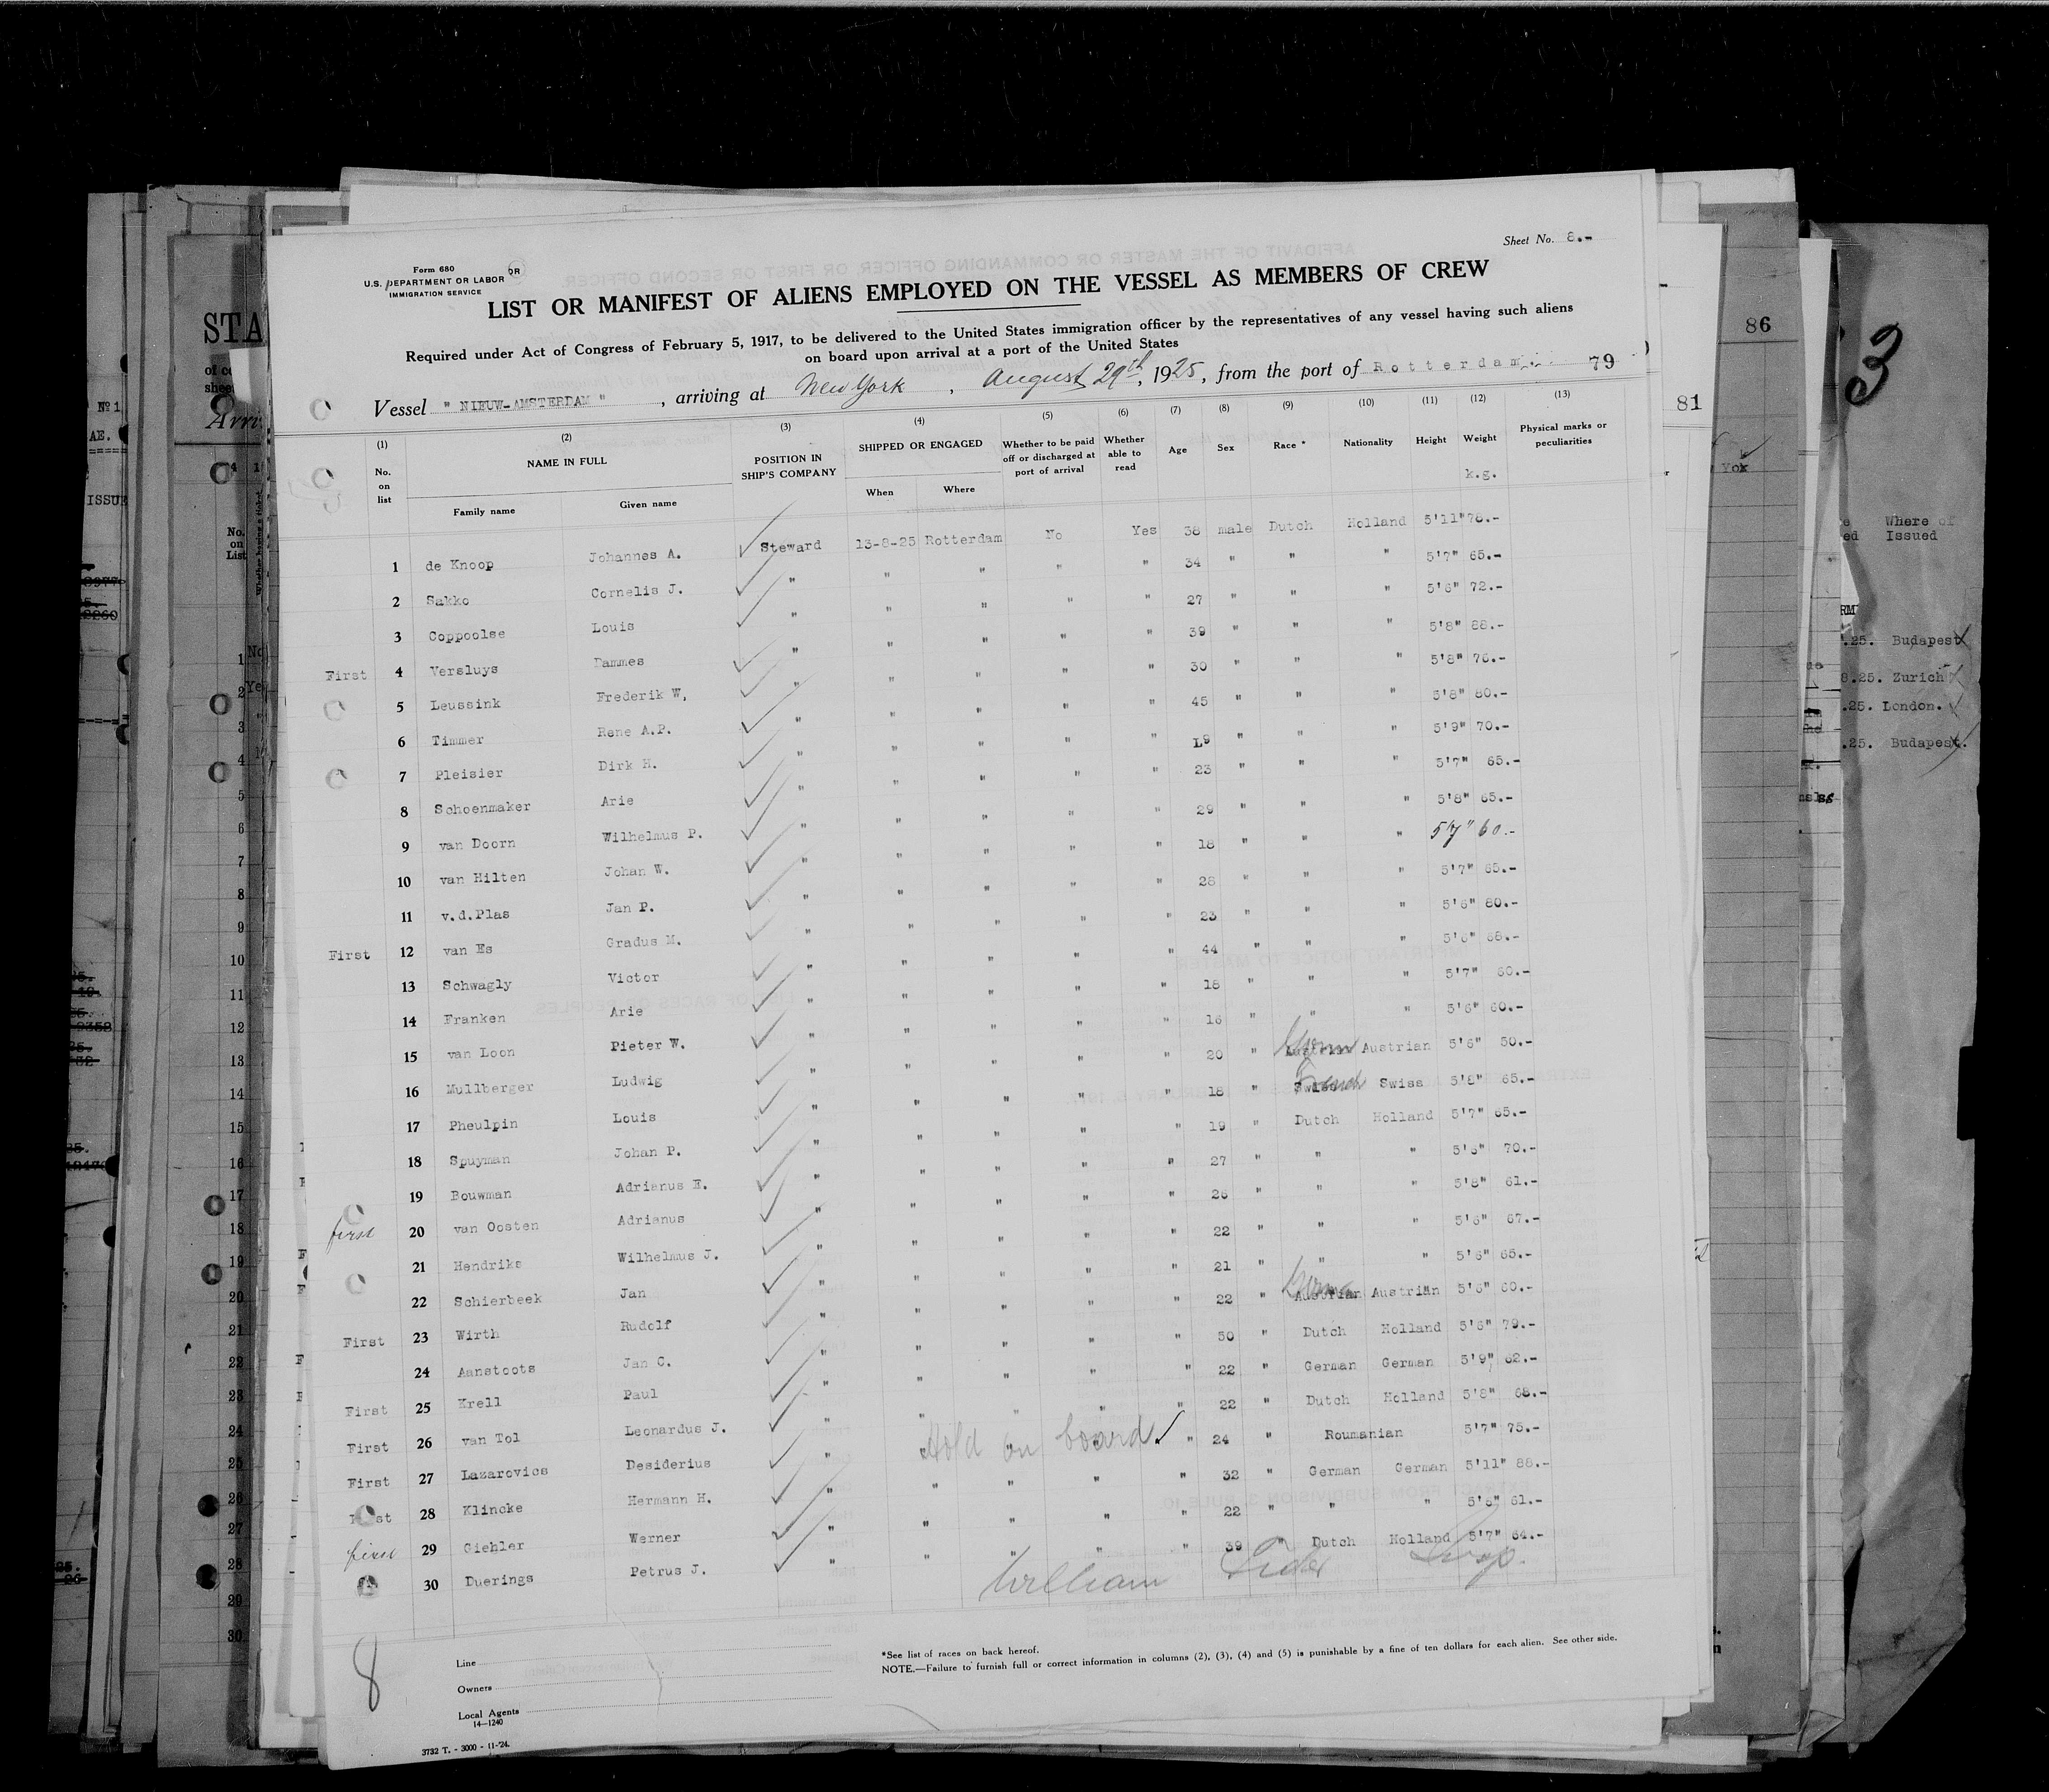 Sheet No. 8.-
Form 680
U.S. DEPARTMENT OR LABOR
IMMIGRATION SERVICE
LIST OR MANIFEST OF ALIENS EMPLOYED ON THE VESSEL AS MEMBERS OF CREW
Required under Act of Congress of February 5, 1917, to be delivered to the United States immigration officer by the representatives of any vessel having such aliens
on board upon arrival at a port of the United States
Vessel " NIEUW-AMSTERDAM ", arriving at New York, August 29th, 1925, from the port of Rotterdam. 79
(1) (2) (3) (4) (5) (6) (7) (8) (9) (10) (11) (12) (13)
No. on list NAME IN FULL Family name Given name POSITION IN SHIP'S COMPANY SHIPPED OR ENGAGED When Where Whether to be paid off or discharged at port of arrival Whether able to read Age Sex Race * Nationality Height Weight k.g. Physical marks or peculiarities
1 de Knoop Johannes A. Steward 13-8-25 Rotterdam No Yes 38 male Dutch Holland 5'11" 78.-
2 Sakko Cornelis J. " " " " " 34 " " " 5'7" 65.-
3 Coppoolse Louis " " " " " 27 " " " 5'6" 72.-
First 4 Versluys Dammes " " " " " 39 " " " 5'8" 88.-
5 Leussink Frederik W, " " " " " 30 " " " 5'8" 76.-
6 Timmer Rene A.P. " " " " " 45 " " " 5'8" 80.-
7 Pleisier Dirk H. " " " " " L9 " " " 5'9" 70.-
8 Schoenmaker Arie " " " " " 23 " " " 5'7" 65.-
9 van Doorn Wilhelmus P. " " " " " 29 " " " 5'8" 65.-
10 van Hilten Johan W. " " " " " 18 " " " 5'7" 60.-
11 v.d.Plas Jan P. " " " " " 28 " " " 5'7" 65.-
First 12 van Es Gradus M. " " " " " 23 " " " 5'6" 80.-
13 Schwagly Victor " " " " " 44 " " " 5'6" 68.-
14 Franken Arie " " " " " 18 " " " 5'7" 60.-
15 van Loon Pieter W. " " " " " 16 " " " 5'6" 60.-
16 Mullberger Ludwig " " " " " 20 " Austrian German Austrian 5'6" 50.-
17 Pheulpin Louis " " " " " 18 " Swiss French Swiss 5'8" 65.-
18 Spuyman Johan P. " " " " " 19 " Dutch Holland 5'7" 65.-
19 Bouwman Adrianus E. " " " " " 27 " " " 5'6" 70.-
first 20 van Oosten Adrianus " " " " " 26 " " " 5'8" 61.-
21 Hendriks Wilhelmus J. " " " " " 22 " " " 5'6" 67.-
22 Schierbeek Jan " " " " " 21 " " " 5'6" 65.-
First 23 Wirth Rudolf " " " " " 22 " Austrian German Austrian 5'6" 60.-
24 Aanstoots Jan C. " " " " " 50 " Dutch Holland 5'6" 79.-
First 25 Krell Paul " " " " " 22 " German German 5'9" 62.-
First 26 van Tol Leonardus J. " " " " " 22 " Dutch Holland 5'8" 68.-
First 27 Lazarovics Desiderius " Hold on board " 24 " Roumanian 5'7" 75.-
First 28 Klincke Hermann H. " " " " " 32 " German German 5'11" 88.-
first 29 Giehler Werner " " " " " 22 " " " 5'8" 61.-
30 Duerings Petrus J. " " " " " 39 " Dutch Holland 5'7" 64.-
William Insp.
8
Line
Owners
Local Agents
14—1240
3732 T. - 3000 - 11-'24.
*See list of races on back hereof.
NOTE.—Failure to furnish full or correct information in columns (2), (3), (4) and (5) is punishable by a fine of ten dollars for each alien. See other side.
81
86
3
Where of
Issued
.25. Budapest
8.25. Zurich
.25. London.
.25. Budapest.